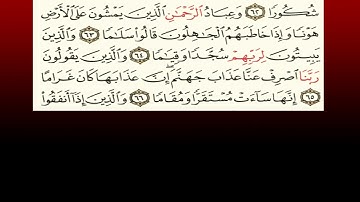 شُكُورًا ٦٢ وَعِبَادُ ٱلرَّحْمَٰنِ ٱلَّذِينَ يَمْشُونَ عَلَى ٱلْأَرْضِ
هَوْنًا وَإِذَا خَاطَبَهُمُ ٱلْجَٰهِلُونَ قَالُوا۟ سَلَٰمًا ٦٣ وَٱلَّذِينَ
يَبِيتُونَ لِرَبِّهِمْ سُجَّدًا وَقِيَٰمًا ٦٤ وَٱلَّذِينَ يَقُولُونَ
رَبَّنَا ٱصْرِفْ عَنَّا عَذَابَ جَهَنَّمَ إِنَّ عَذَابَهَا كَانَ غَرَامًا
٦٥ إِنَّهَا سَآءَتْ مُسْتَقَرًّا وَمُقَامًا ٦٦ وَٱلَّذِينَ إِذَآ أَنفَقُوا۟